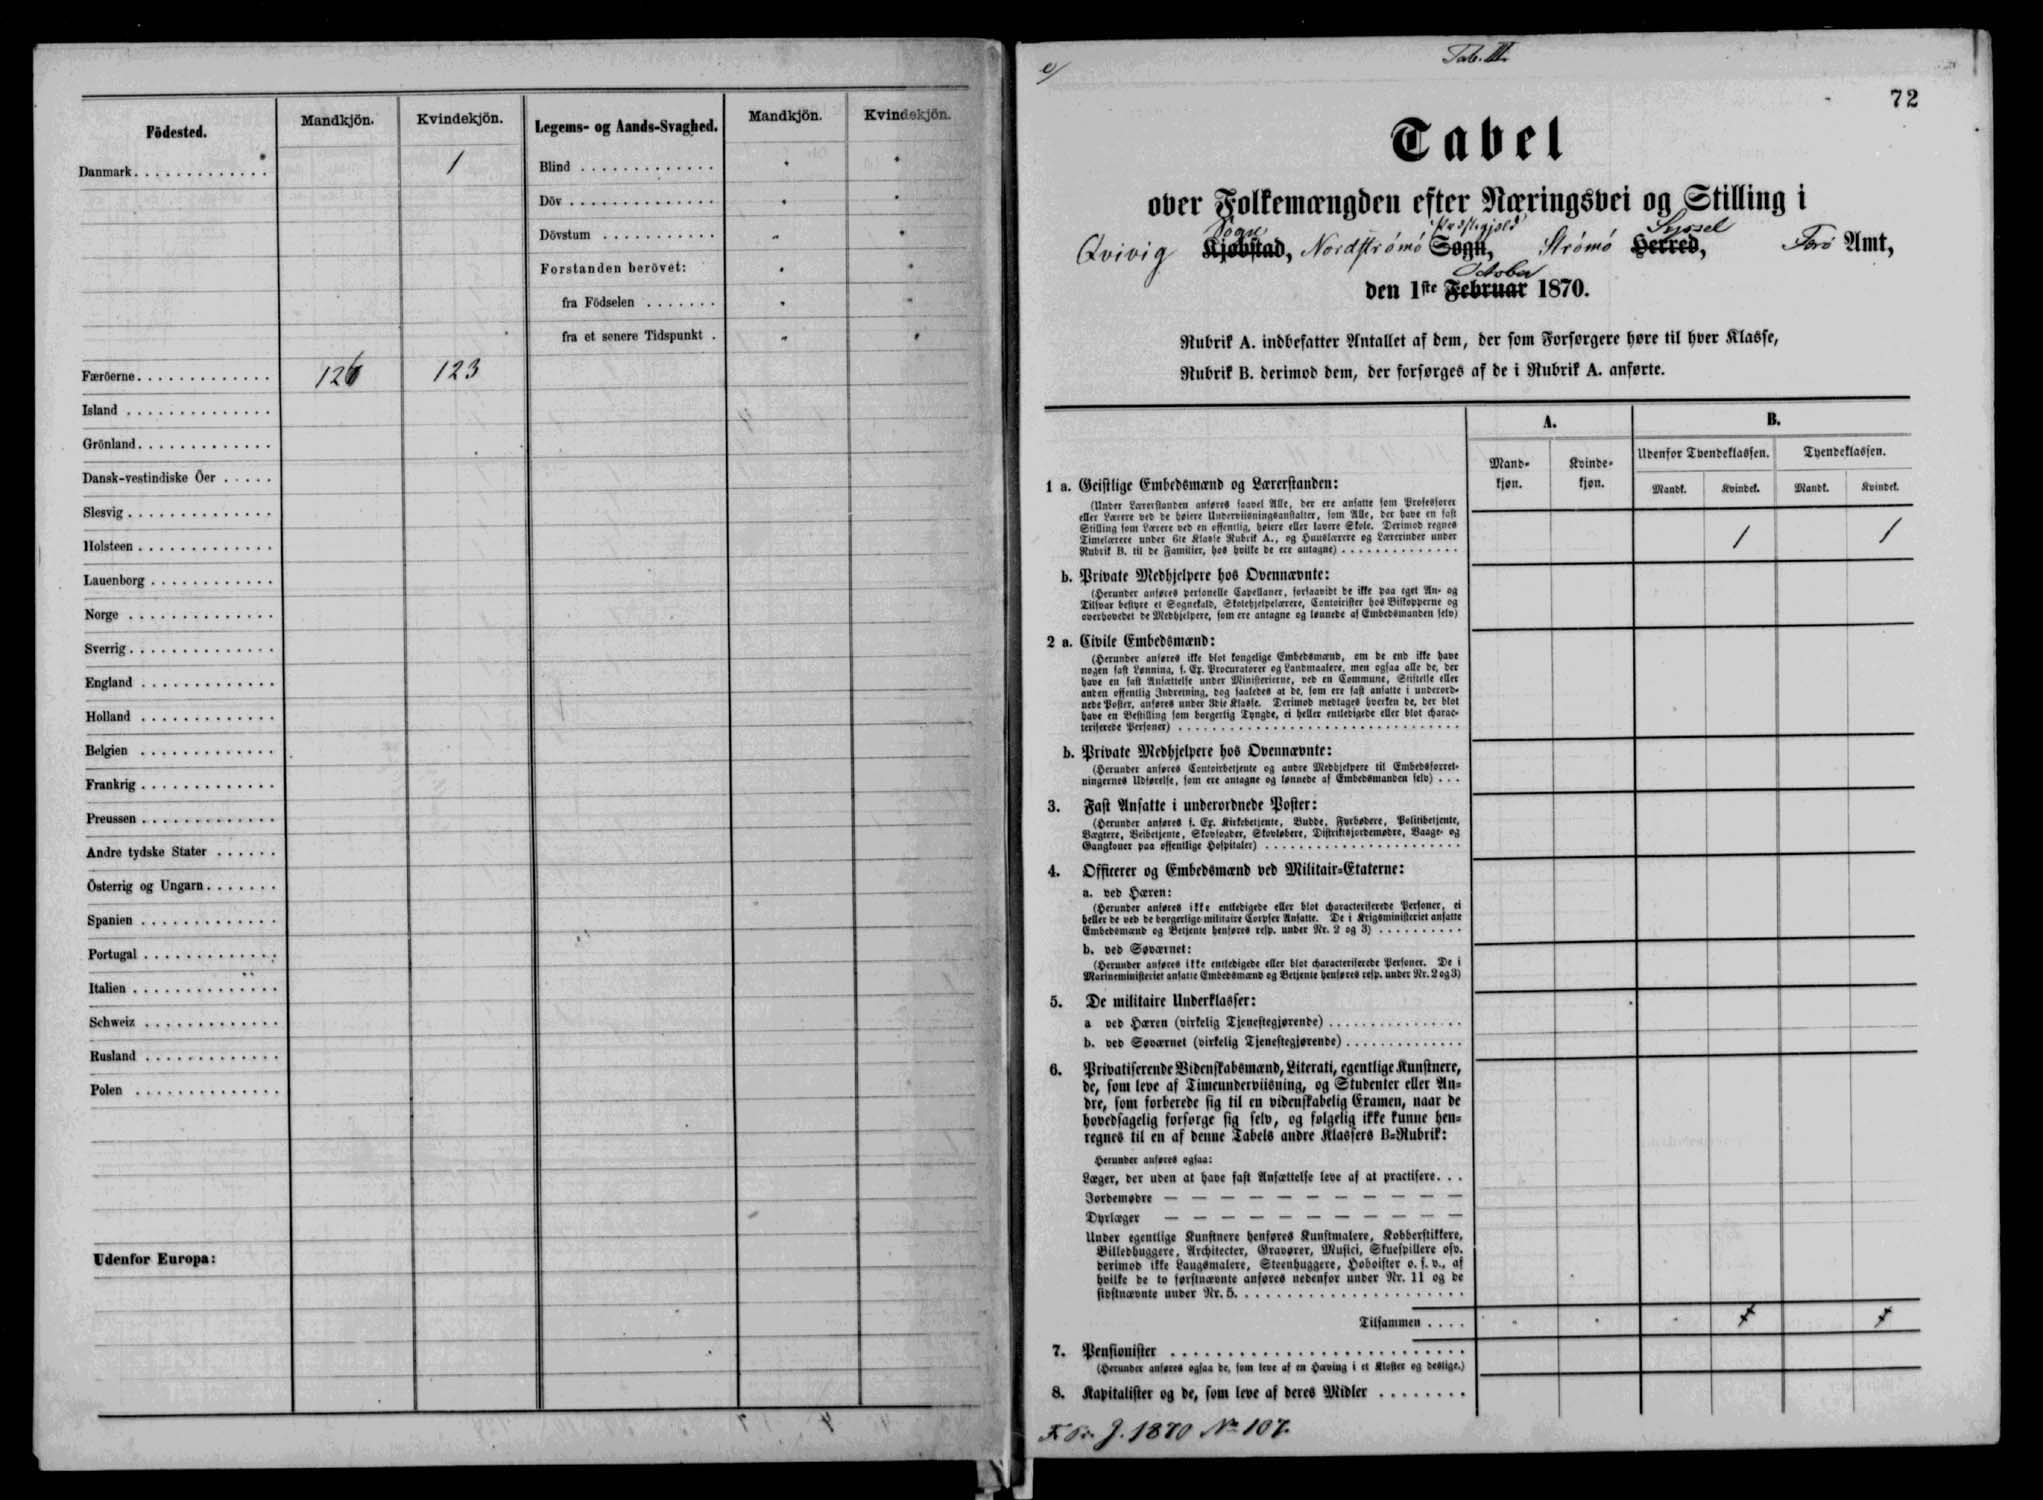 Födested.
Mandkjön.
Kvindekjön.
Legems- og Aands-Svaghed.
Mandkjön.
Kvindekjön.
Danmark . . . . . . . . . . . . . 1
Færöerne . . . . . . . . . . . . 126 123
Island . . . . . . . . . . . . . .
Grönland . . . . . . . . . . . .
Dansk-vestindiske Öer . . . . .
Slesvig . . . . . . . . . . . . . .
Holsteen . . . . . . . . . . . . .
Lauenborg . . . . . . . . . . . .
Norge . . . . . . . . . . . . . .
Sverrig . . . . . . . . . . . . . .
England . . . . . . . . . . . . .
Holland . . . . . . . . . . . . .
Belgien . . . . . . . . . . . . .
Frankrig . . . . . . . . . . . . .
Preussen . . . . . . . . . . . . .
Andre tydske Stater . . . . . .
Österrig og Ungarn . . . . . . .
Spanien . . . . . . . . . . . . .
Portugal . . . . . . . . . . . . .
Italien . . . . . . . . . . . . . .
Schweiz . . . . . . . . . . . . .
Rusland . . . . . . . . . . . . .
Polen . . . . . . . . . . . . . .
Udenfor Europa:
Blind . . . . . . . . . . . . .
Döv . . . . . . . . . . . . . .
Dövstum . . . . . . . . . . .
Forstanden berövet:
fra Födselen . . . . . . .
fra et senere Tidspunkt .
Tab. III.
72
Tabel
over Folkemængden efter Næringsvei og Stilling i
Sogn Præstegjeld Syssel
Qvivig Kjøbstad, Nordströmö Sogn, Strömö Herred, Færö Amt,
October
den 1ste Februar 1870.
Rubrik A. indbefatter Antallet af dem, der som Forsørgere høre til hver Klasse,
Rubrik B. derimod dem, der forsørges af de i Rubrik A. anførte.
A.
B.
Mand-
kjøn.
Kvinde-
kjøn.
Udenfor Tyendeklassen.
Tyendeklassen.
Mandk.
Kvindek.
Mandk.
Kvindek.
1 a. Geistlige Embedsmænd og Lærerstanden:
(Under Lærerstanden anføres saavel Alle, der ere ansatte som Professorer
eller Lærere ved de høiere Underviisningsanstalter, som Alle, der have en fast
Stilling som Lærere ved en offentlig, høiere eller lavere Skole. Derimod regnes
Timelærere under 6te Klasse Rubrik A., og Huuslærere og Lærerinder under
Rubrik B. til de Familier, hos hvilke de ere antagne) . . . . . . . . . . . . . . 1 1
b. Private Medhjelpere hos Ovennævnte:
(Herunder anføres personelle Capellaner, forsaavidt de ikke paa eget An- og
Tilsvar bestyre et Sognekald, Skolehjelpelærere, Contoirister hos Biskopperne og
overhovedet de Medhjelpere, som ere antagne og lønnede af Embedsmanden selv)
2 a. Civile Embedsmænd:
(Herunder anføres ikke blot kongelige Embedsmænd, om de end ikke have
nogen fast Lønning, f. Ex. Procuratorer og Landmaalere, men ogsaa alle de, der
have en fast Ansættelse under Ministerierne, ved en Commune, Stiftelse eller
anden offentlig Indretning, dog saaledes at de, som ere fast ansatte i underord-
nede Poster, anføres under 3die Klasse. Derimod medtages hverken de, der blot
have en Bestilling som borgerlig Tyngde, ei heller entledigede eller blot charac-
teriserede Personer) . . . . . . . . . . . . . . . . . . . . . . . . . . . . . . .
b. Private Medhjelpere hos Ovennævnte:
(Herunder anføres Contoirbetjente og andre Medhjelpere til Embedsforret-
ningernes Udførelse, som ere antagne og lønnede af Embedsmanden selv) . . .
3. Fast Ansatte i underordnede Poster:
(Herunder anføres f. Ex. Kirkebetjente, Budde, Fyrbødere, Politibetjente,
Vægtere, Veibetjente, Skovfogder, Skovløbere, Distriktsjordemødre, Vaage- og
Gangkoner paa offentlige Hospitaler) . . . . . . . . . . . . . . . . . . . . . . .
4. Officerer og Embedsmænd ved Militair-Etaterne:
a. ved Hæren:
(Herunder anføres ikke entledigede eller blot characteriserede Personer, ei
heller de ved de borgerlige militaire Corpser Ansatte. De i Krigsministeriet ansatte
Embedsmænd og Betjente henføres resp. under Nr. 2 og 3) . . . . . . . . . .
b. ved Søværnet:
(Herunder anføres ikke entledigede eller blot characteriserede Personer. De i
Marineministeriet ansatte Embedsmænd og Betjente henføres resp. under Nr. 2 og 3)
5. De militaire Underklasser:
a ved Hæren (virkelig Tjenestegjørende) . . . . . . . . . . . . . . .
b. ved Søværnet (virkelig Tjenestegjørende) . . . . . . . . . . . . . .
6. Privatiserende Videnskabsmænd, Literati, egentlige Kunstnere,
de, som leve af Timeunderviisning, og Studenter eller An-
dre, som forberede sig til en videnskabelig Examen, naar de
hovedsagelig forsørge sig selv, og følgelig ikke kunne hen-
regnes til en af denne Tabels andre Klassers B-Rubrik:
Herunder anføres ogsaa:
Læger, der uden at have fast Ansættelse leve af at practisere. . .
Jordemødre — — — — — — — — — — —
Dyrlæger — — — — — — — — — — —
Under egentlige Kunstnere henføres Kunstmalere, Kobberstikkere,
Billedhuggere, Architecter, Gravører, Musici, Skuespillere osv.
derimod ikke Laugsmalere, Steenhuggere, Hoboister o. s. v., af
hvilke de to førstnævnte anføres nedenfor under Nr. 11 og de
sidstnævnte under Nr. 5. . . . . . . . . . . . . . . . . . . . . .
Tilsammen . . . . 1 1
7. Pensionister . . . . . . . . . . . . . . . . . . . . . . . . .
(Herunder anføres ogsaa de, som leve af en Hæving i et Kloster og deslige.)
8. Kapitalister og de, som leve af deres Midler . . . . . . . .
J. 1870 No 107.